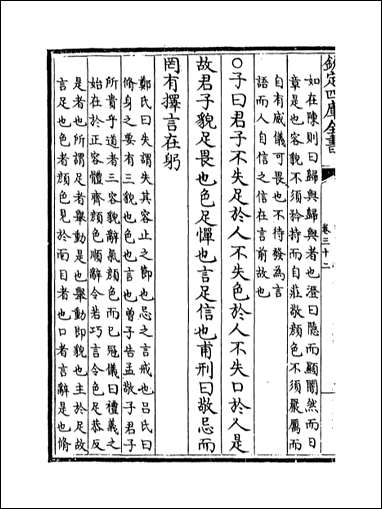 欽定四庫全書
卷三十二
如在陳則曰歸與歸與者也澄曰隱而顯闇然而日
章是也容貌不須矜持而自莊敬顔色不須嚴厲而
自有威儀可畏也不待發為言
語而人自信之信在言前故也
○子曰君子不失足於人不失色於人不失口於人是
故君子貌足畏也色足憚也言足信也甫刑曰敬忌而
罔有擇言在躬
鄭氏曰失謂失其容止之節也忌之言戒也吕氏曰
脩身之要有三貌也色也言也曽子告孟敬子君子
所貴乎道者三容貌辭氣顔色而已冠儀曰禮義之
始在於正容體齊顔色順辭令若巧言令色足恭反
是者也所謂足者舉動是也舉動即貌也主於足故
言足也色者顔色見於面目者也口者言辭是也脩